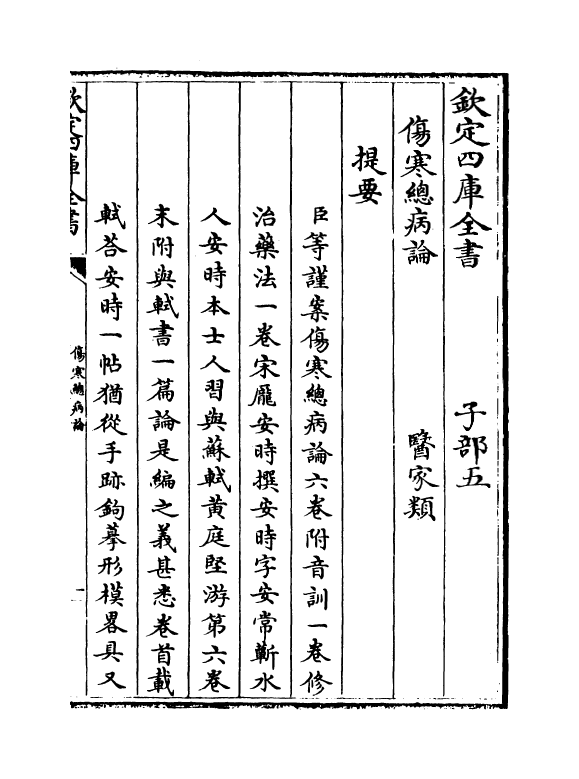 欽定四庫全書　子部五
傷寒總病論　醫家類
提要
臣等謹案傷寒總病論六卷附音訓一卷修
治藥法一卷宋龐安時撰安時字安常蘄水
人安時本士人習與蘇軾黃庭堅游第六卷
末附與軾書一篇論是編之義甚悉卷首載
軾荅安時一帖猶從手跡鉤摹形模畧具又
欽定四庫全書
傷寒總病論